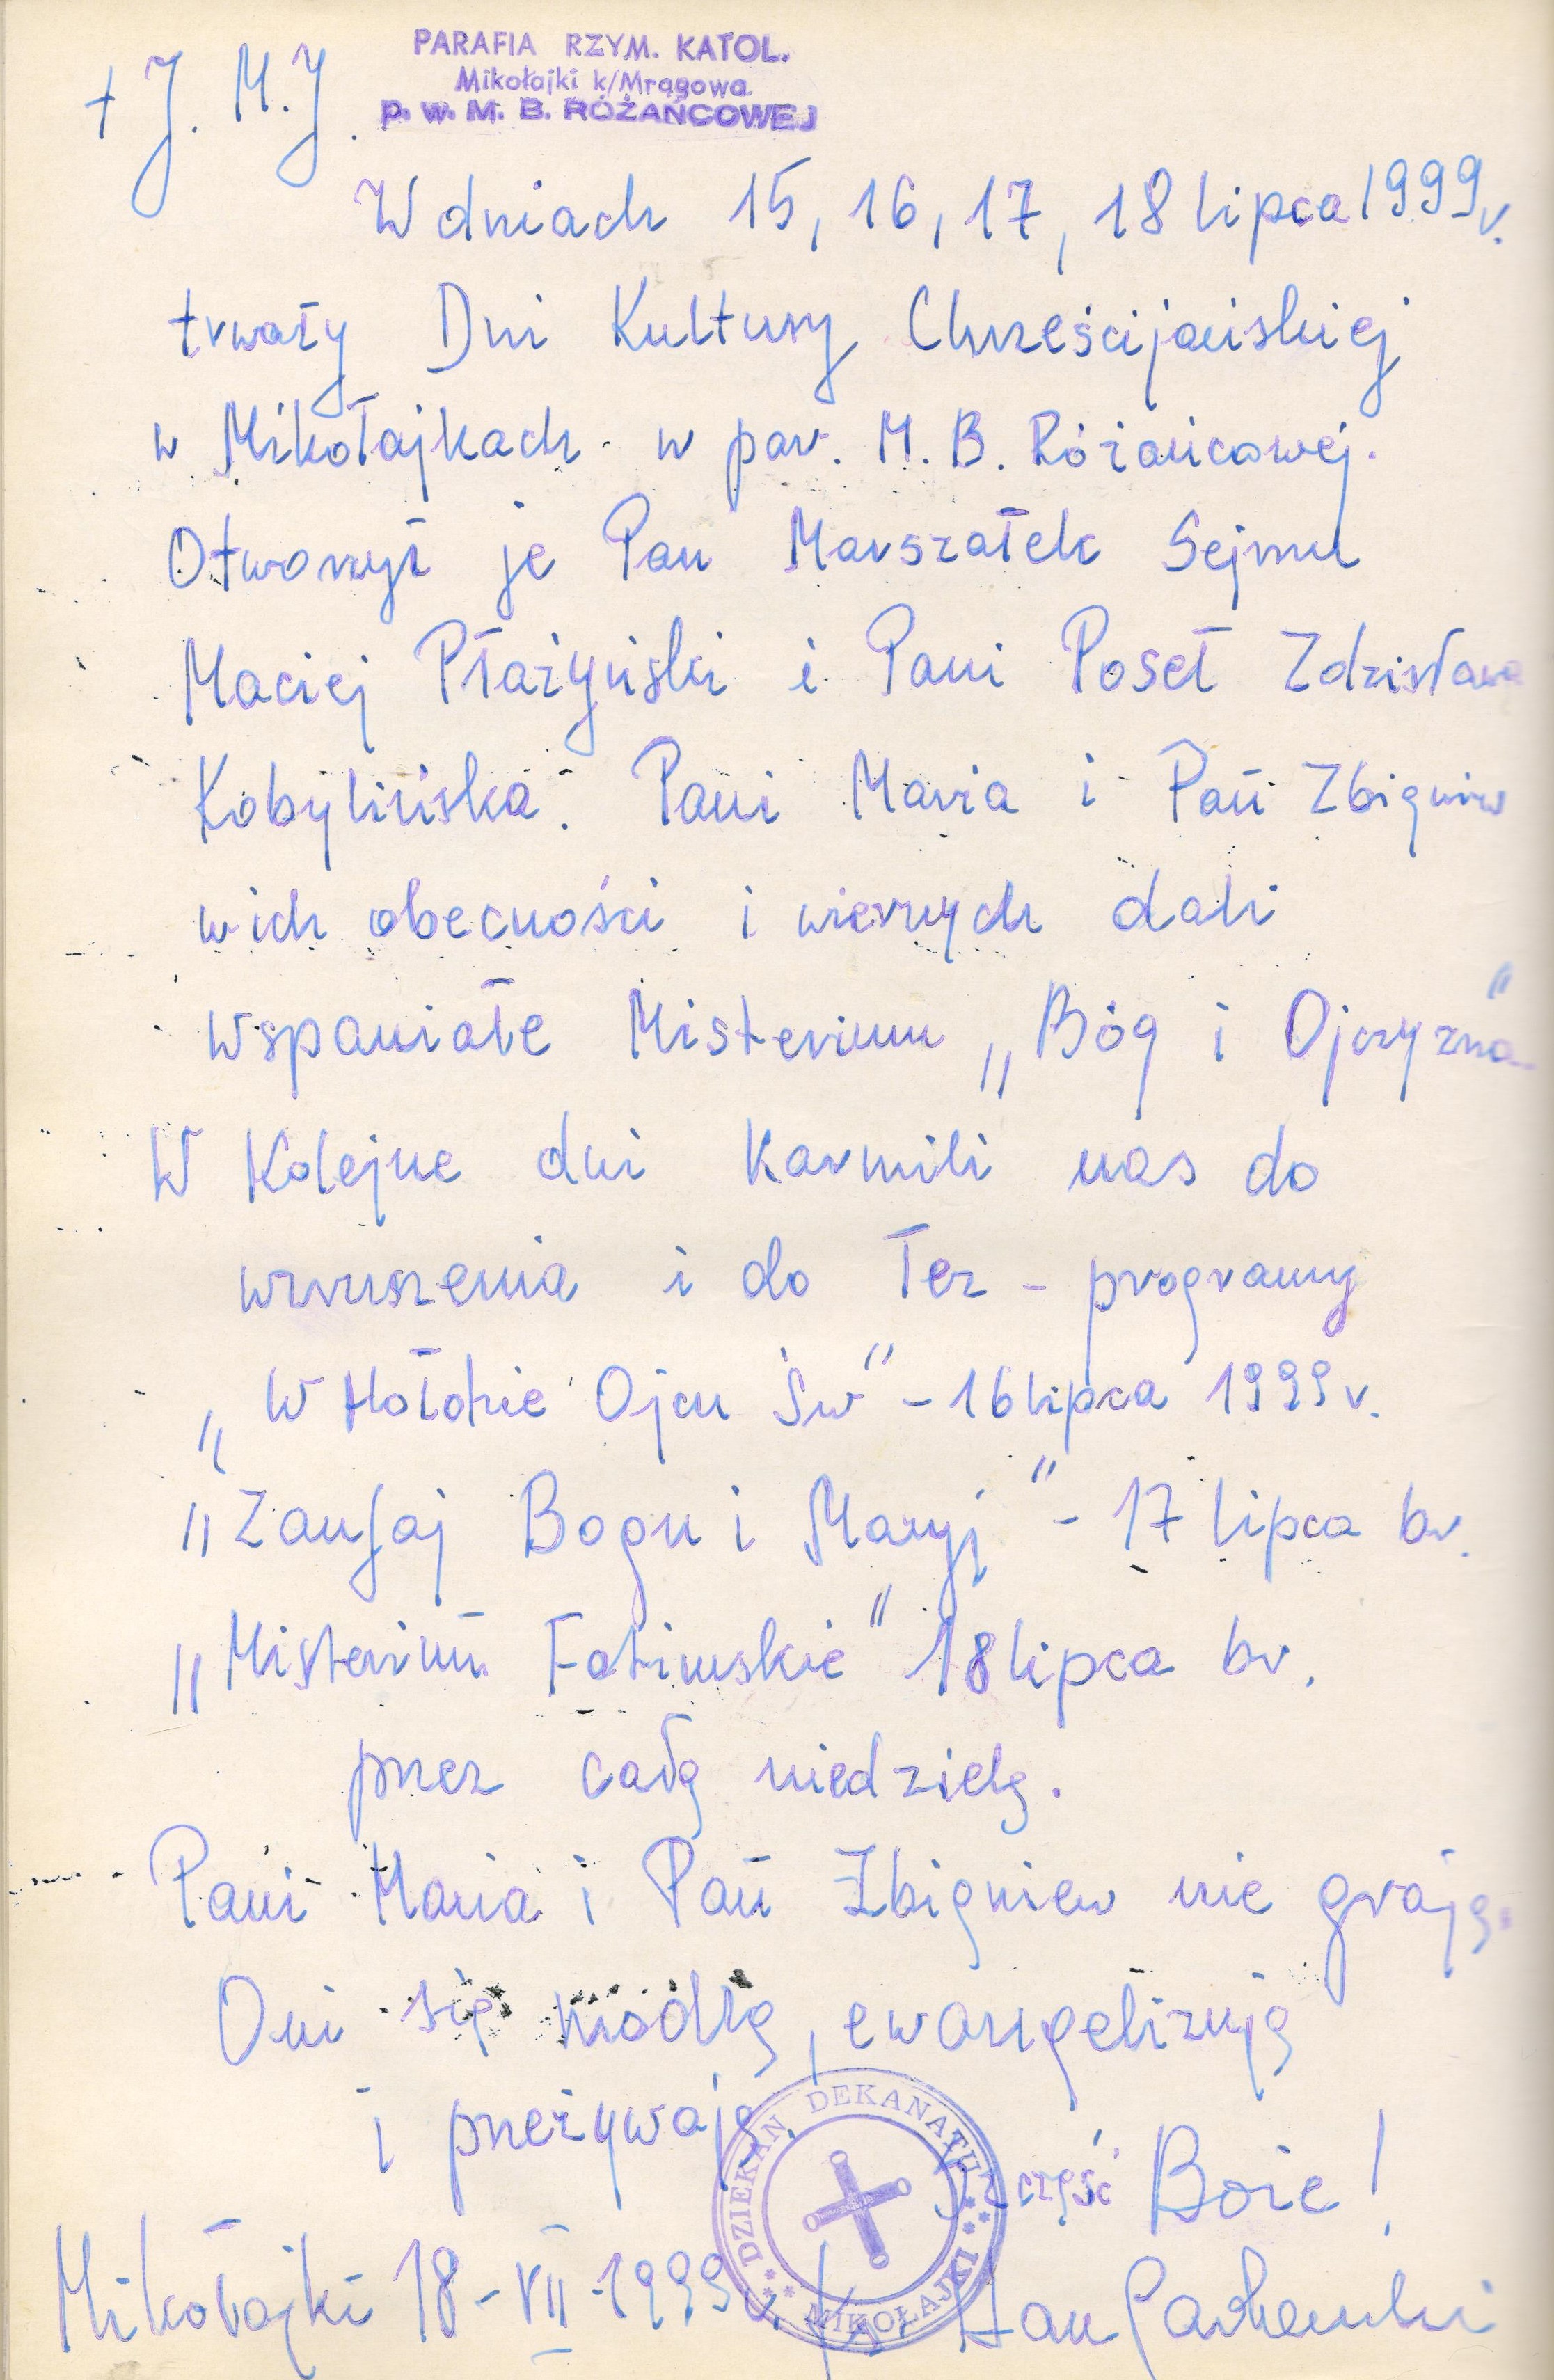 PARAFIA RZYM. KATOL.
Mikołajki k/Mrągowa
p. w. M. B. RÓŻAŃCOWEJ
+ J. M. J.
W dniach 15, 16, 17, 18 lipca 1999 r.
trwały Dni Kultury Chrześcijańskiej
w Mikołajkach w par. M. B. Różańcowej.
Otworzył je Pan Marszałek Sejmu
Maciej Płażyński i Pani Poseł Zdzisława
Kobylińska. Pani Maria i Pan Zbigniew
w ich obecności i wiernych dali
wspaniałe Misterium „Bóg i Ojczyzna"
W Kolejne dni Karmili nas do
wzruszenia i do łez - programy
„W Hołdzie Ojcu Św" - 16 lipca 1999 r.
„Zaufaj Bogu i Maryj" - 17 lipca br.
„Misterium Fatimskie" 18 lipca br.
przez całą niedzielę.
Pani Maria i Pan Zbigniew nie grają.
Oni się modlą, ewangelizują
i przeżywają.
Szczęść Boże!
DZIEKAN DEKANATU
MIKOŁAJKI
Mikołajki 18-VII-1999 r.